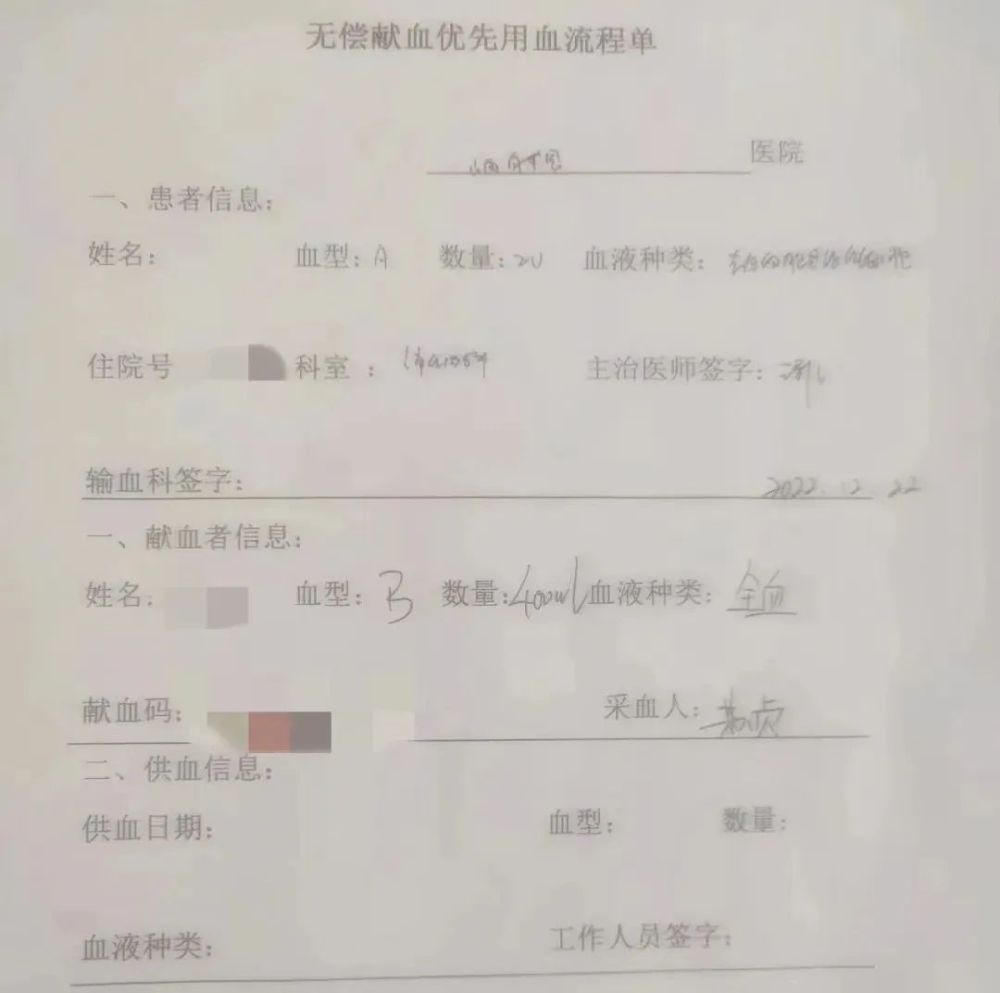 无偿献血优先用血流程单
医院
一、患者信息：
姓名： 血型：A 数量：2U 血液种类：
住院号 科室： 主治医师签字：
输血科签字： 2022.12.22
一、献血者信息：
姓名： 血型：B 数量：400ml 血液种类：全血
献血码： 采血人：
二、供血信息：
供血日期： 血型： 数量：
血液种类： 工作人员签字：